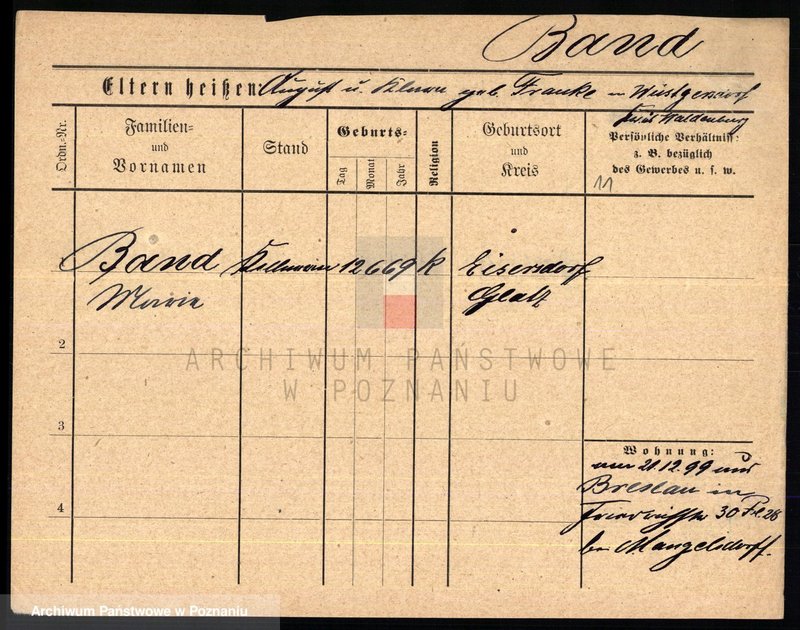 Band
Eltern heißen August u. Klara geb. Franke in Wüstgersdorf
Kreis Waldenburg
Ordn.-Nr.
Familien-
und
Vornamen
Stand
Geburts-
Tag
Monat
Jahr
Religion
Geburtsort
und
Kreis
Persönliche Verhältniss:
z. B. bezüglich
des Gewerbes u. s. w.
11
Band Kellnerin 12 6 69 K Eisersdorf
Marie Glatz
2
ARCHIWUM PAŃSTWOWE
W POZNANIU
3
Wohnung:
21.12.99
Breslau in
4
30 28
bei Mangelsdorff.
Archiwum Państwowe w Poznaniu